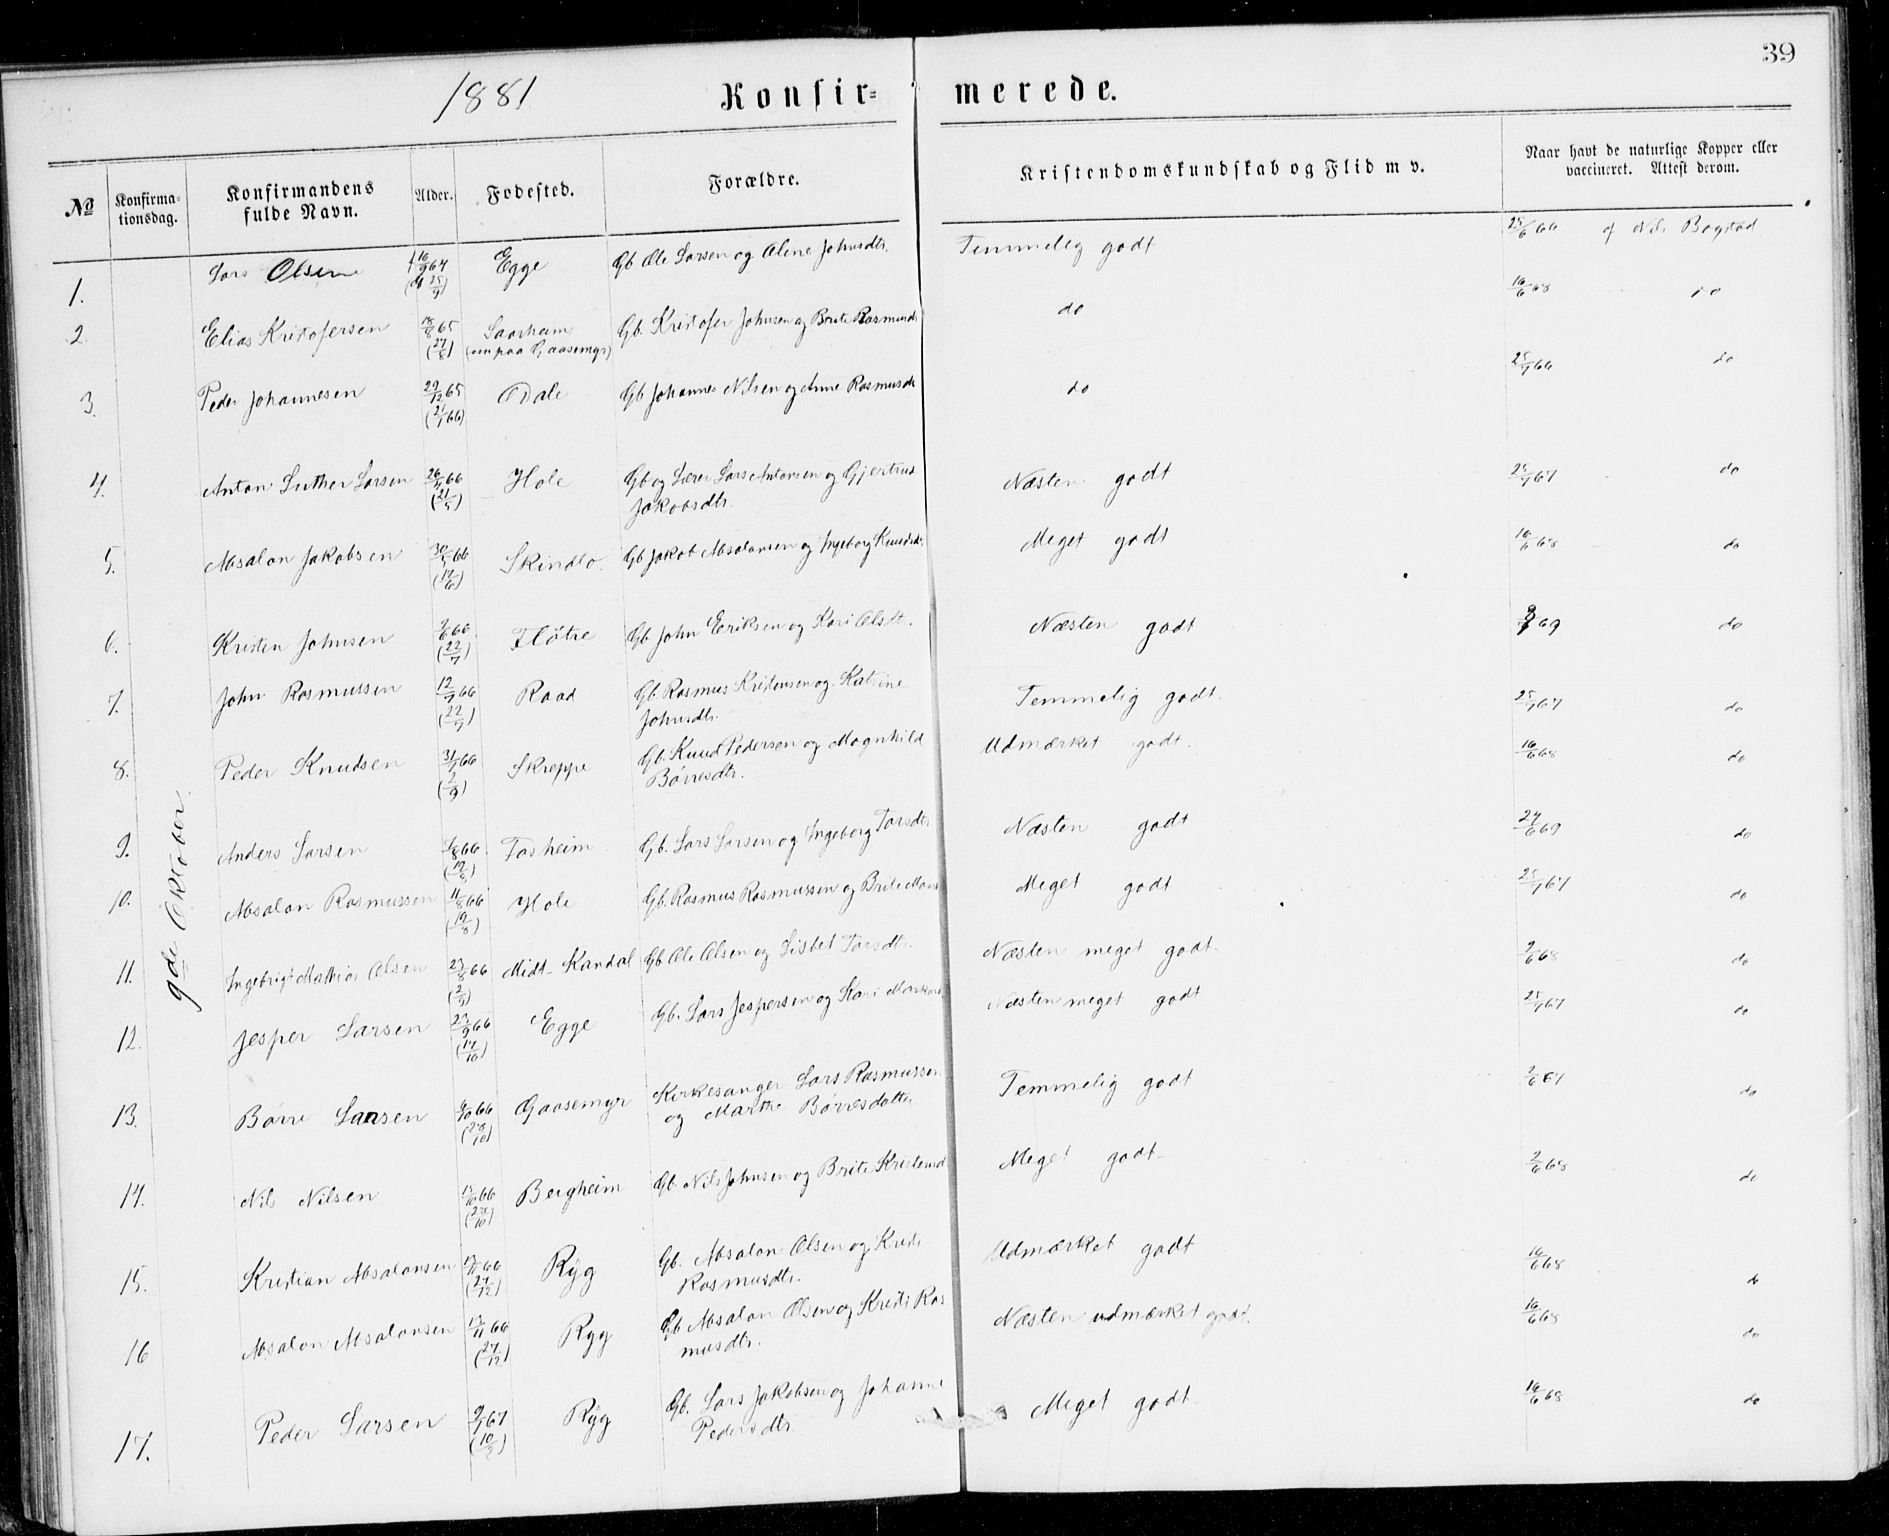 39
1881 Konfir= merede.
№ Konfirma-tionsdag. Konfirmandens fulde Navn. Alder. Fødested. Forældre. Kristendomskundskab og Flid m v. Naar havt de naturlige Kopper eller vaccineret. Attest derom.
9de Oktober
1. Lars Olsen 16/9 64 (25/9) Egge Gb Ole Larsen og Oline Johnsdtr. Temmelig godt 25/6 66 af Nils Bogstad
2. Elias Kristofersen 18/8 65 (27/8) Saarheim Gb. Kristofer Johnsen og Brite Rasmusdt do 16/6 68 do
(nu paa Gaasemyr)
3. Peder Johannesen 29/12 65 (21/1 66) Dale Gb Johannes Nilsen og Anne Rasmusdt do 25/7 66 do
4. Anton Luther Larsen 26/4 66 (21/5) Hole Gb og Lærer Lars Antonsen og Gjertrud Næsten godt 25/7 67 do
Jakobsdtr.
5. Absalon Jakobsen 30/5 66 (17/6) Skindlo Gb Jakob Absalonsen og Ingeborg Knudsdt Meget godt 16/6 68 do
6. Kristen Johnsen 2/6 66 (22/7) Fløtre Gb John Eriksen og Kari Olsdt. Næsten godt 69 do
7. John Rasmussen 12/7 66 (22/7) Raad Gb. Rasmus Kristensen og Katrine Temmelig godt. 25/7 67 do
Johnsdtr.
8. Peder Knudsen 31/7 66 (2/9) Skreppe Gb. Knud Pedersen og Magnhild Udmærket godt. 16/6 68 do
Børresdtr.
9. Anders Larsen 66 Fosheim Gb. Lars Larsen og Ingeborg Larsdtr Næsten godt 24/6 69 do
10. Absalon Rasmussen 11/8 66 (19/8) Hole Gb. Rasmus Rasmussen og Brite Meget godt 25/7 67 do
11. Ingebrigt Mathias Olsen 23/8 66 (2/9) Midt-Kandal Gb Ole Olsen og Lisbet Larsdtr. Næsten meget godt 2/6 68 do
12. Jesper Larsen 66 (14/10) Egge Gb. Lars Jespersen og Kari Næsten meget godt 25/7 67 do
13. Børre Larsen 6/10 66 (28/10) Gaasemyr Kirkesanger Lars Rasmussen Temmelig godt 2/6 67 do
og Marthe Børresdatter
14. Nils Nilsen 15/10 66 (28/10) Bergheim Gb. Nils Johnsen og Brite Kristensd Meget godt 2/6 68 do
15. Kristian Absalonsen 13/11 66 (27/12) Ryg Gb. Absalon Olsen og Kristi Udmærket godt 16/6 68 do
Rasmusdtr.
16 Absalon Absalonsen 13/11 66 (27/12) Ryg Gb Absalon Olsen og Kristi Ras Næsten udmærket godt. 16/6 68 do
musdtr.
17. Peder Larsen 67 Ryg Gb. Lars Jakobsen og Johanne Meget godt 16/6 68 do
Pedersdtr.